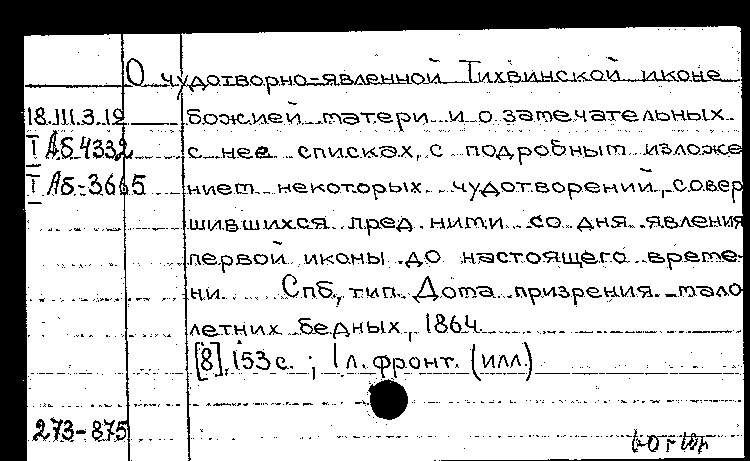 О чудотворно-явленной Тихвинской иконе
18.III.3.19 божией матери и о замечательных
I Аб 4332 с нее списках, с подробным изложе
I Аб-3665 нием некоторых чудотворений, совер
шившихся пред ними со дня явления
первой иконы до настоящего време-
ни Спб, тип. Дома призрения мало
летних бедных, 1864
[8], 153 с. ; 1 л. фронт. (илл.)
273-875